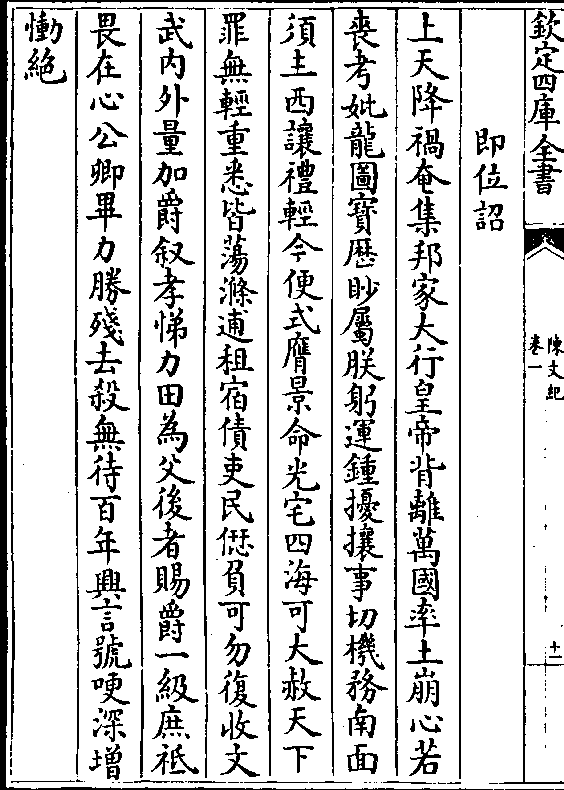 欽定四庫全書
陳文紀
卷一
十一
即位詔
上天降禍奄集邦家大行皇帝背離萬國率土崩心若
喪考妣龍圖寶厯眇屬朕躬運鍾擾攘事切機務南面
須主西讓禮輕今便式膺景命光宅四海可大赦天下
罪無輕重悉皆蕩滌逋租宿債吏民愆負可勿復收文
武內外量加爵叙孝悌力田為父後者賜爵一級庶祗
畏在心公卿畢力勝殘去殺無待百年興言號哽深增
慟絕